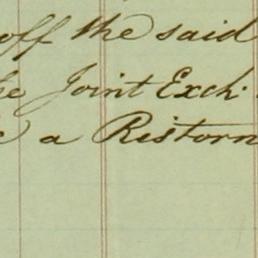 off the said
he Joint Exch.
a Ristorn